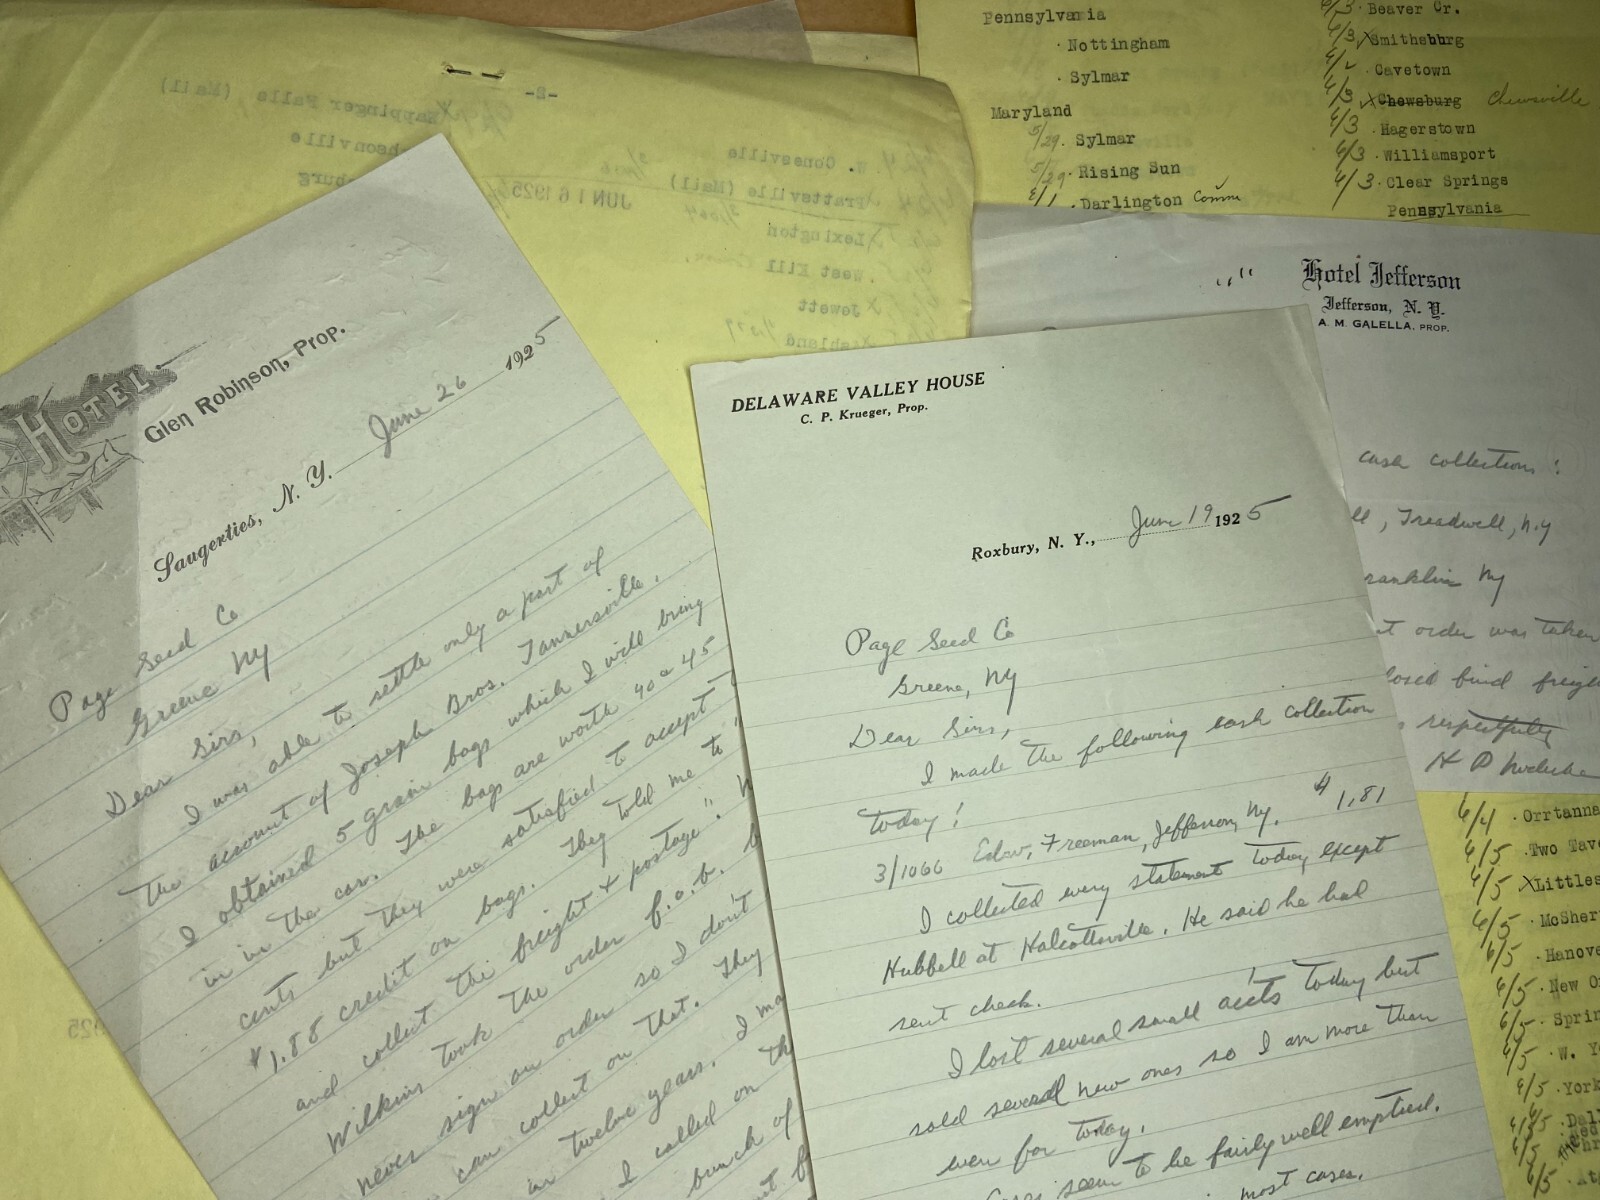 Pennsylvania
Nottingham
Sylmar
Maryland
5/29 Sylmar
5/29 Rising Sun
6/1 Darlington Comm
6/3 Beaver Cr.
6/3 Smithsburg
Cavetown
6/3 Chewsburg Chewsville
6/3 Hagerstown
6/3 Williamsport
6/3 Clear Springs
Pennsylvania
-2-
W. Conesville
Prattsville (Mail)
Lexington
West Kill
Jewett
Ashland
JUN 16 1925
Wappinger Falls (Mail)
HOTEL.
Glen Robinson, Prop.
Saugerties, N. Y. June 26 1925
Page Seed Co
Greene NY
Dear Sirs,
I was able to settle only a part of
the account of Joseph Bros. Tannersville.
I obtained 5 grain bags which I will bring
in in the car. The bags are worth 40 a 45
cents but they were satisfied to accept
$1.88 credit on bags. They told me to
and collect the freight & postage."
Wilkins took the order f.o.b.
never sign an order so I don't
can collect on that. They
in twelve years. I
I called on the
bunch of
DELAWARE VALLEY HOUSE
C. P. Krueger, Prop.
Roxbury, N. Y., June 19 1925
Page Seed Co
Greene, NY
Dear Sirs,
I made the following cash collection
today:
3/1066 Edw. Freeman, Jefferson, NY. $1.81
I collected every statement today except
Hubbell at Halcottsville. He said he had
sent check.
I lost several small acc'ts today but
sold several new ones so I am more than
even for today.
Cases seem to be fairly well emptied.
most cases.
Hotel Jefferson
Jefferson, N. Y.
A. M. GALELLA, PROP.
cash collections:
Treadwell, N.Y
Franklin NY
order was taken
find freight
respectfully
6/4 Orrtanna
6/5 Two Tave
6/5 Littles
6/5 McSher
6/5 Hanove
6/5 New O
6/5 Sprin
6/5 W. Y
6/5 York
6/5 Dall
6/5